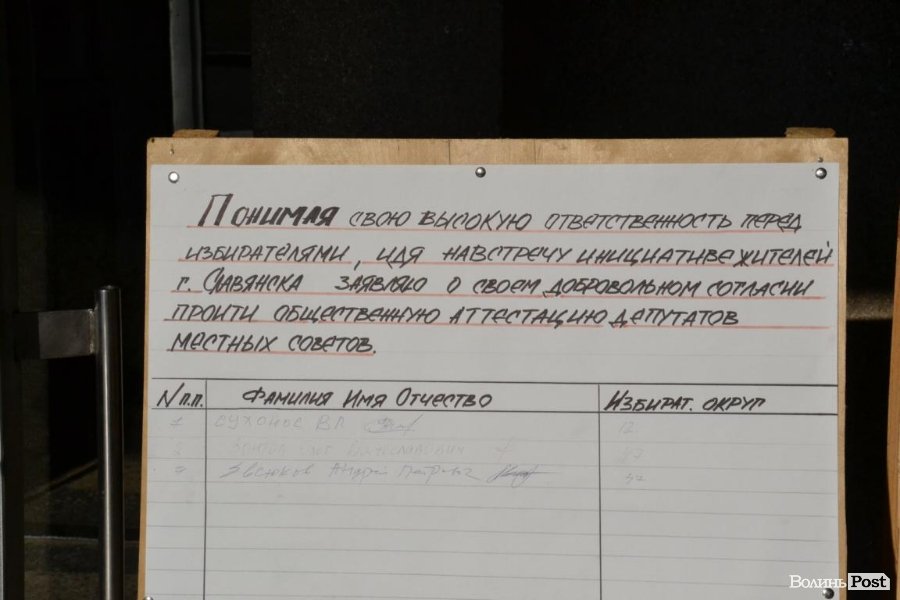 Понимая свою высокую ответственность перед
избирателями, идя навстречу инициативе жителей
г. Славянска заявляю о своем добровольном согласии
пройти общественную аттестацию депутатов
местных советов.
N п.п. Фамилия Имя Отчество Избират. округ
1 Сухонос В Л 12
Андрей Петрович
Волинь Post